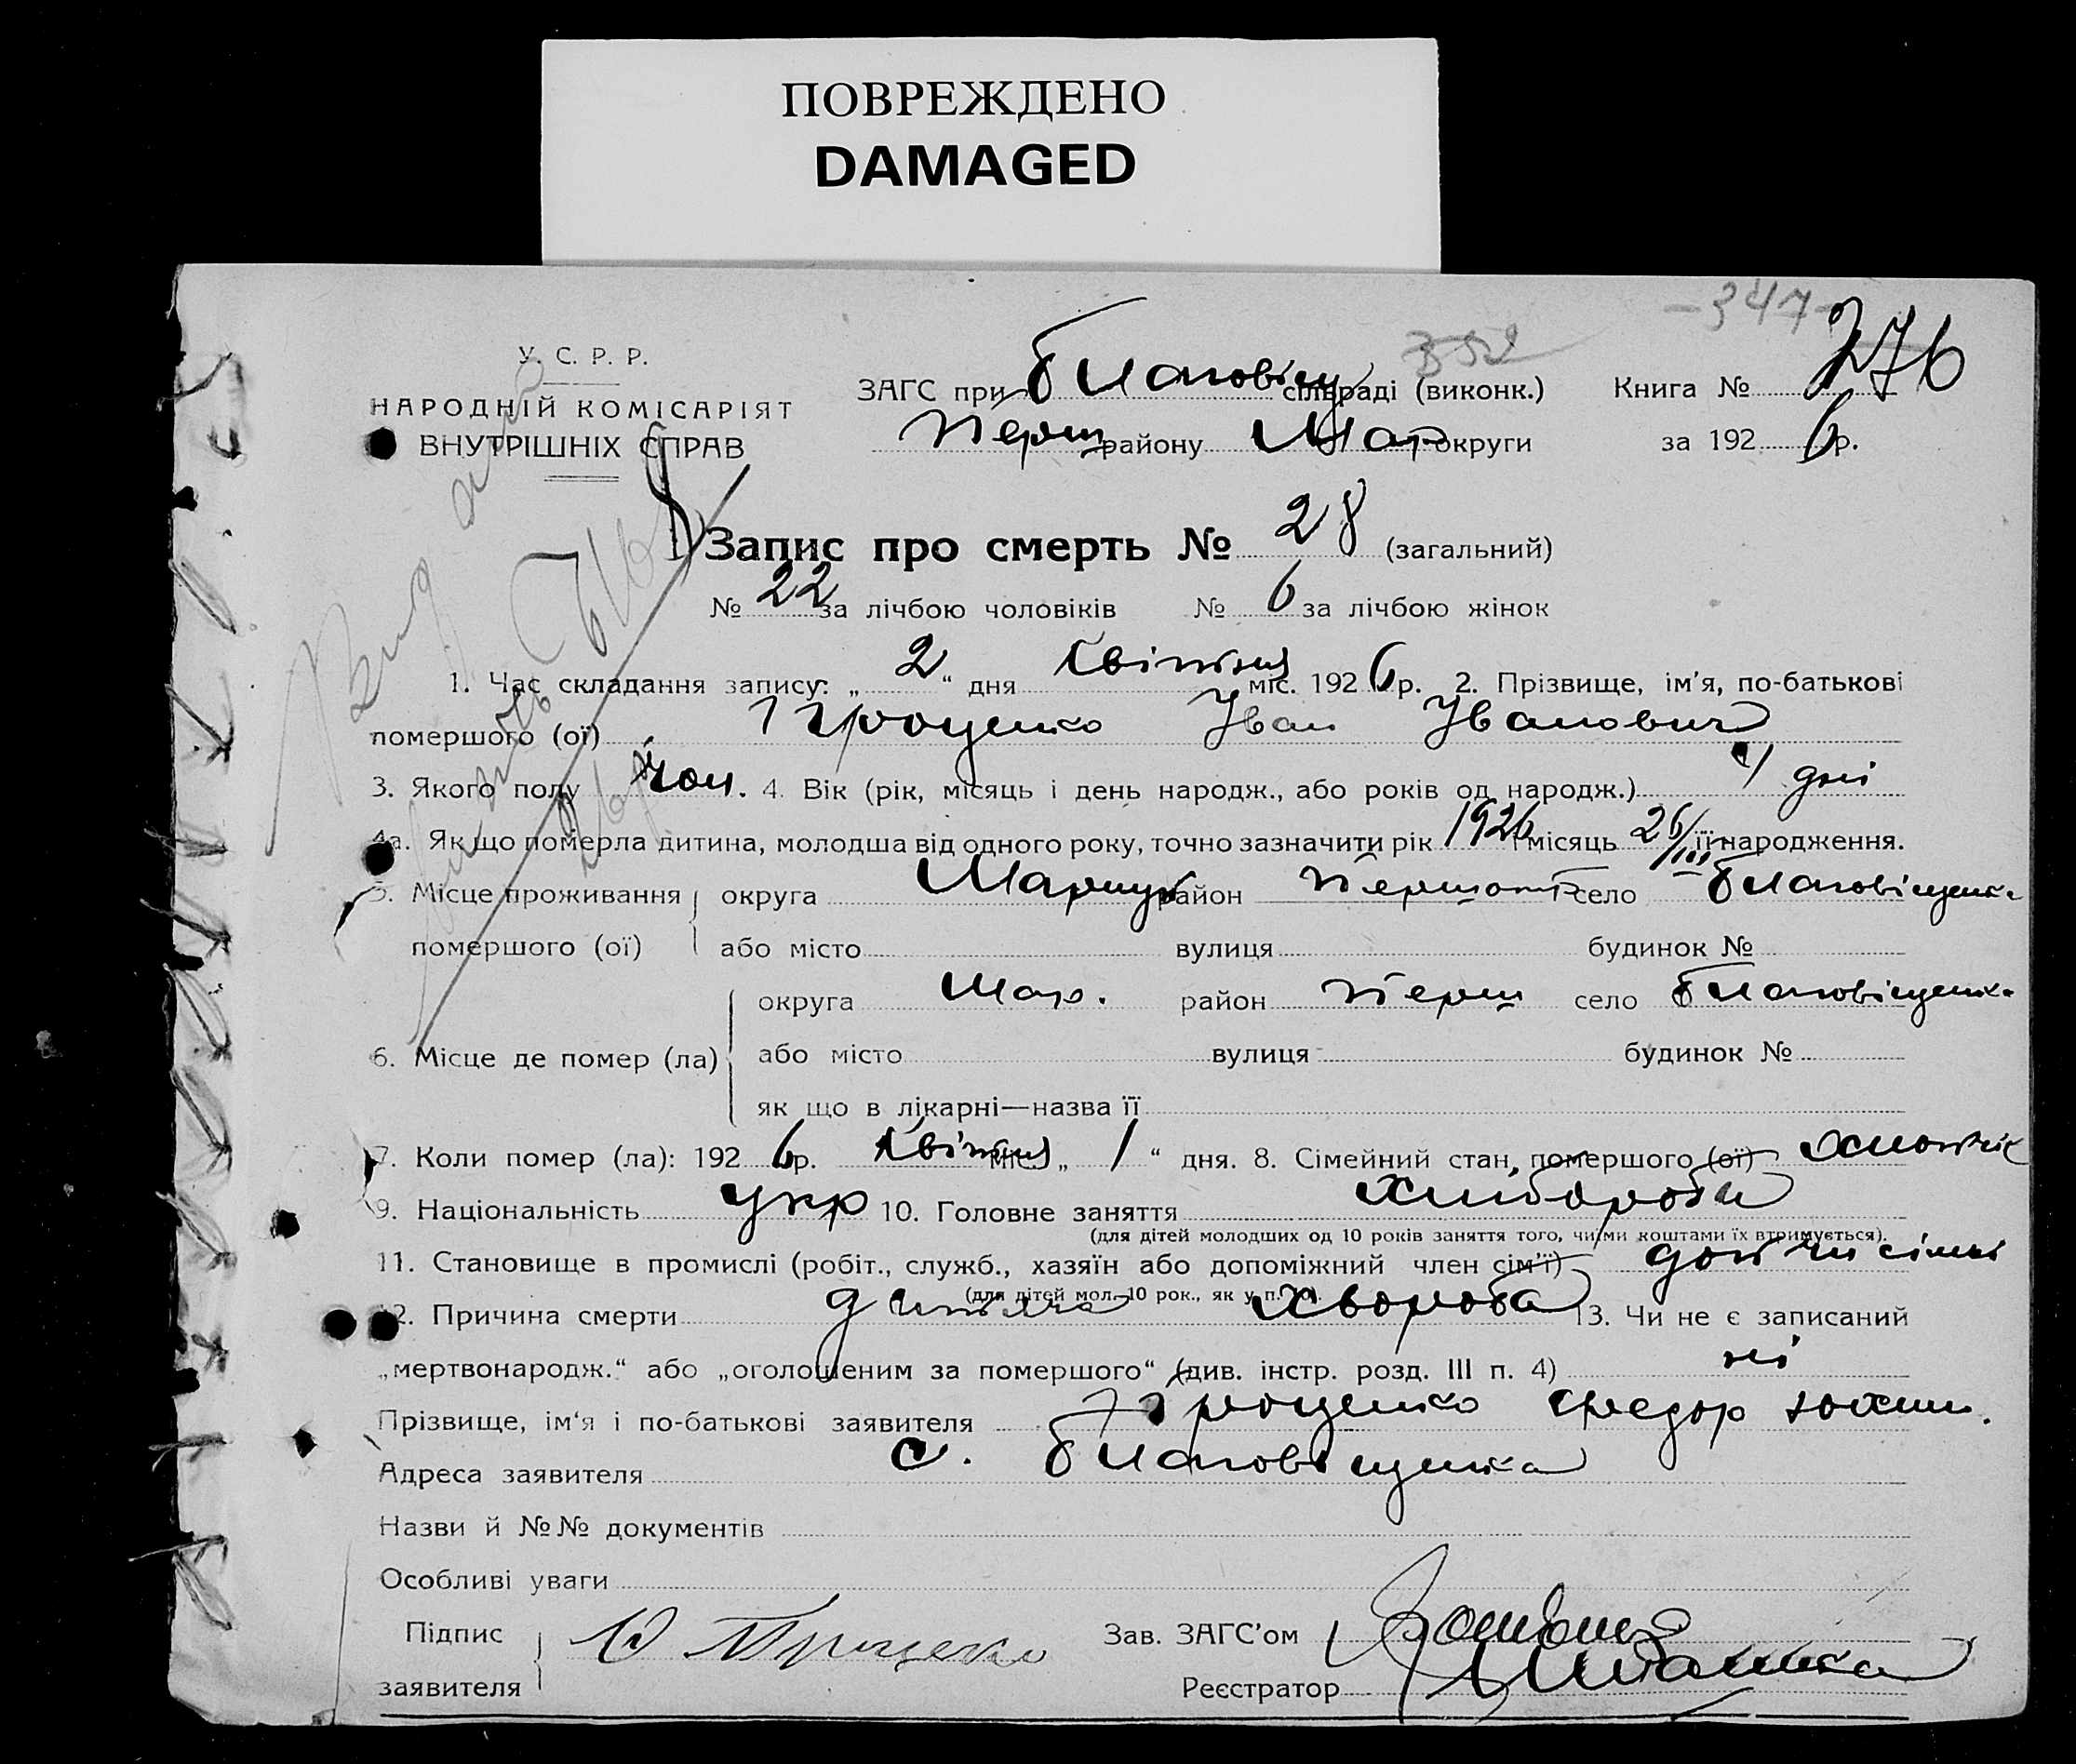 ПОВРЕЖДЕНО
DAMAGED
-347-
352
276
У. С. Р. Р.
НАРОДНІЙ КОМІСАРІЯТ
ВНУТРІШНІХ СПРАВ
ЗАГС при Благовіщ сільраді (виконк.) Книга №
Перш району Мар округи за 1926 р.
Запис про смерть № 28 (загальний)
№ 22 за лічбою чоловіків № 6 за лічбою жінок
1. Час складання запису: „2“ дня Квітня міс. 1926 р. 2. Прізвище, ім'я, по-батькові
помершого (ої) Проценко Іван Іванович
3. Якого полу чол. 4. Вік (рік, місяць і день народж., або років од народж.) дні
4а. Як що померла дитина, молодша від одного року, точно зазначити рік 1926 і місяць 26/III її народження.
5. Місце проживання округа Маріуп район Першотр село Благовіщенка
помершого (ої) або місто вулиця будинок №
округа Мар. район Перш село Благовіщенка
6. Місце де помер (ла) або місто вулиця будинок №
як що в лікарні—назва її
7. Коли помер (ла): 1926 р. Квітня міс. „1“ дня. 8. Сімейний стан помершого (ої)
9. Національність укр 10. Головне заняття хлибороби
(для дітей молодших од 10 років заняття того, чиїми коштами їх втримується).
11. Становище в промислі (робіт., служб., хазяїн або допоміжний член сім'ї) доп чл сімьі
(для дітей мол. 10 рок., як у п. 10).
12. Причина смерти дитяча хвороба 13. Чи не є записаний
„мертвонародж.“ або „оголошеним за помершого“ (див. інстр. розд. III п. 4) ні
Прізвище, ім'я і по-батькові заявителя Проценко Федор
Адреса заявителя с. Благовіщенка
Назви й №№ документів
Особливі уваги
Підпис
заявителя
Проценко
Зав. ЗАГС'ом
Реєстратор